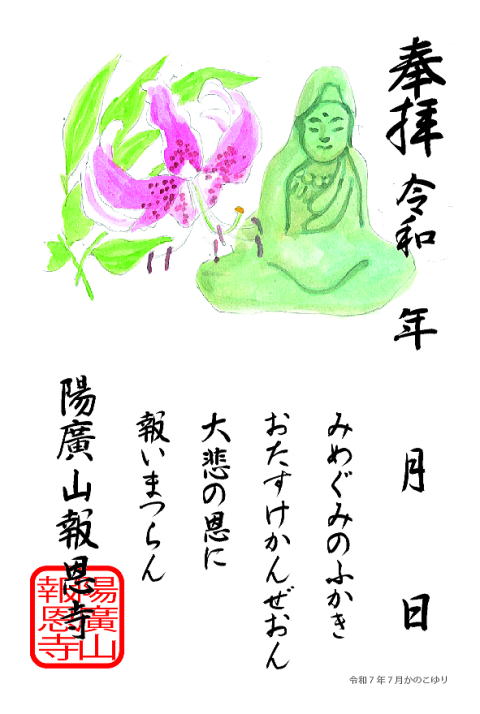 奉拝 令和 年 月 日
みめぐみのふかき
おたすけかんぜおん
大悲の恩に
報いまつらん
陽廣山報恩寺
陽廣山
報恩寺
令和7年7月かのこゆり